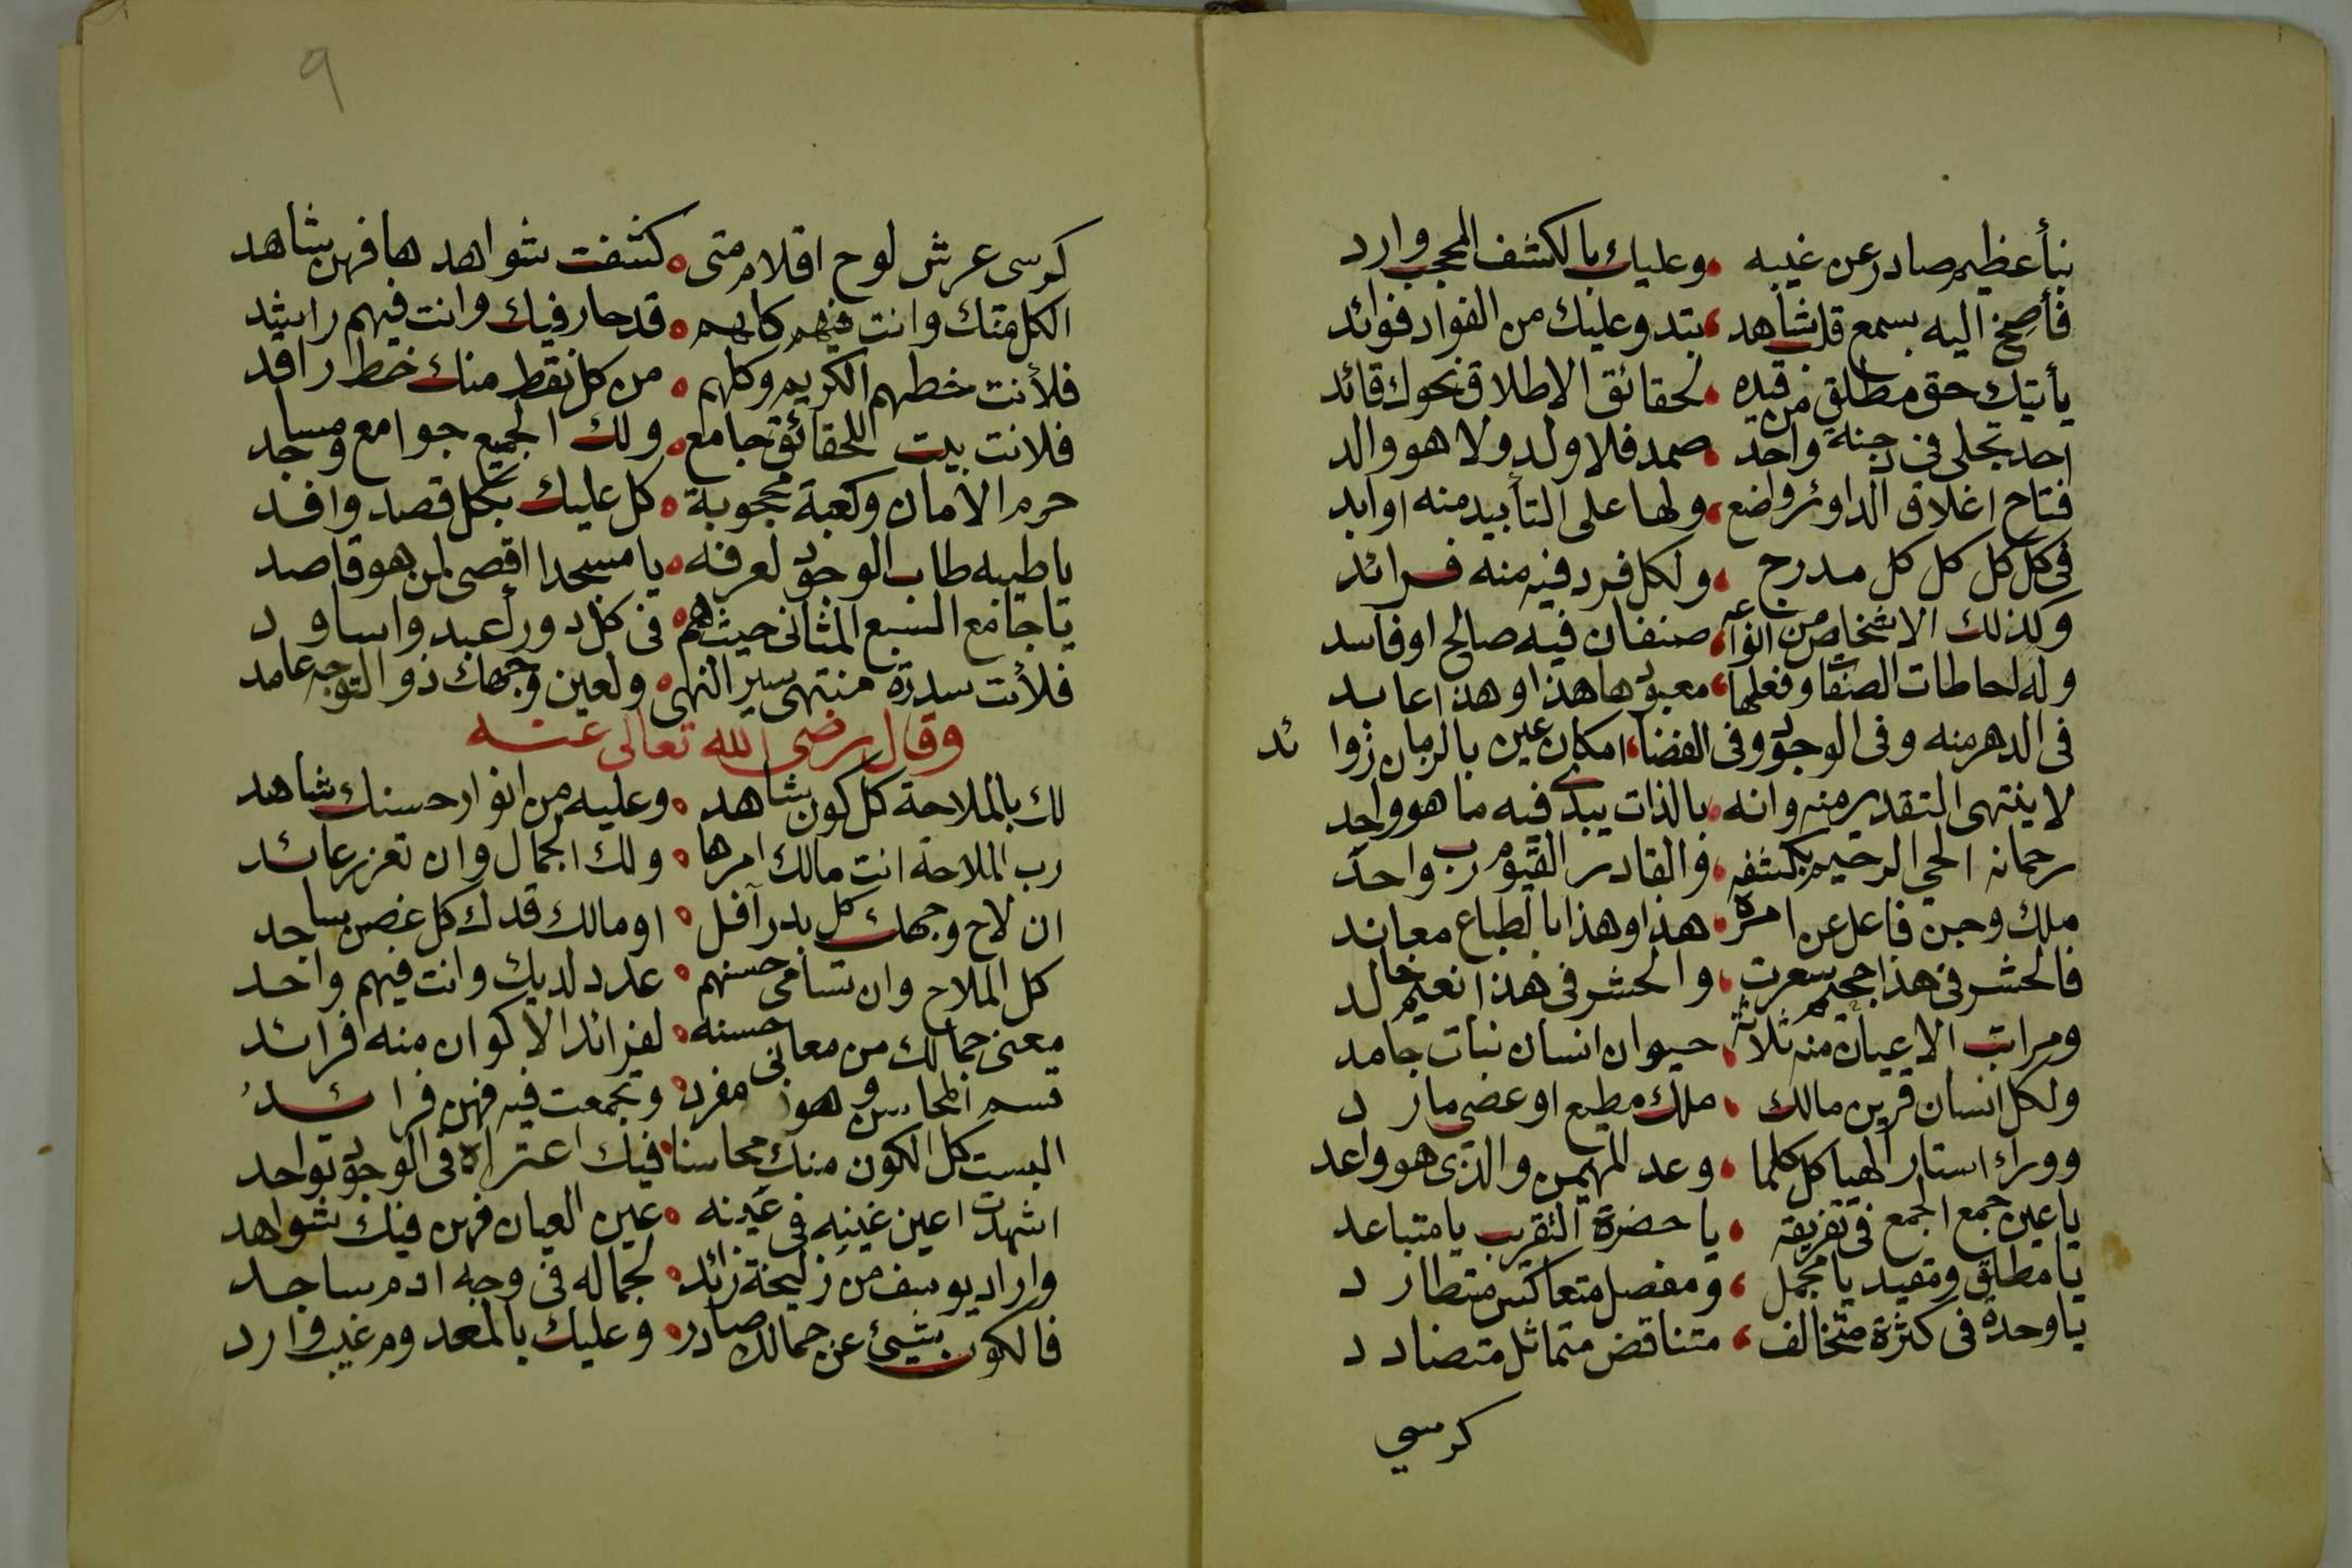 نبأ عظيم صادر عن غيبه وعليك بالكشف المحجب وارد
فأصخ اليه بسمع قلب شاهد يبتد وعليك من الفواد فوائد
يأتيك حق مطلق من قيده لحقائق الاطلاق نحوك قائد
احد تجلى في جنة واحد صمد فلا ولد ولا هو والد
فتاح اغلاق الداوئر واضع ولها على التأبيد منه اوابد
في كل كل كل كل مدرج ولكل فرد فيه منه فرائد
وكذلك الاشخاص من انواعه صنفان فيه صالح او فاسد
وله احاطات الصفات وفعلها معبودها هذا وهذا عابد
في الدهر منه وفي الوجود وفي الفضا امكان عين بالزمان زوائد
لا ينتهى التقدير منه وانه بالذات يبدى فيه ما هو واجد
رحمانه الحي الرحيم بكشفه والقادر القيوم رب واحد
ملك وجن فاعل عن امره هذا وهذا بالطباع معاند
فالحشر في هذا جحيم سعرت والحشر في هذا نعيم خالد
ومراتب الاعيان منه ثلاثة حيوان انسان نبات جامد
ولكل انسان قرين مالك ملك مطيع او عصى مارد
ووراء استار الهياكل كلما وعد المهيمن والذى هو واعد
يا عين جمع الجمع في تفريقه يا حضرة التقريب يا متباعد
يا مطلق ومقيد يا مجمل ومفصل متعاكس متطارد
يا وحدة في كثرة متخالف متناقض متماثل متضادد
كرسي
٩
كرسى عرش لوح اقلام متى كشفت شواهدها فهن شاهد
الكل منك وانت فيهم كلهم قد حار فيك وانت فيهم راشد
فلأنت خطهم الكريم وكلهم من كل نقط منك خط راقد
فلانت بيت للحقائق جامع ولك الجميع جوامع ومساجد
حرم الامان وكعبة محجوبة كل عليك بكل قصد وافد
يا طيبه طاب الوجود لعرفه يا مسجدا اقصى لمن هو قاصد
يا جامع السبع المثانى حيث هم في كل دور أعبد واساود
فلأنت سدرة منتهى سير النهى ولعين وجهك ذو التوجه عامد
وقال رضى الله تعالى عنه
لك بالملاحة كل كون شاهد وعليه من انوار حسنك شاهد
رب الملاحة انت مالك امرها ولك الجمال وان تعزز عائد
ان لاح وجهك كل بدر آفل او مالك قدك كل غصن ساجد
كل الملاح وان تسامى حسنهم عدد لديك وانت فيهم واحد
معنى جمالك من معانى حسنه لفرائد الاكوان منه افرائد
قسم المحاسن وهو مفرد وتجمعت فيه فهن فرائد
البست كل الكون منك محاسنا فيك اعتراه في الوجود تواجد
اشهدت اعين غينه في عينه عين العيان فهن فيك شواهد
واراد يوسف من زليخة زائد لجماله في وجه ادم ساجد
فالكون شيئ عن جمالك صادر وعليك بالمعدوم غيب وارد